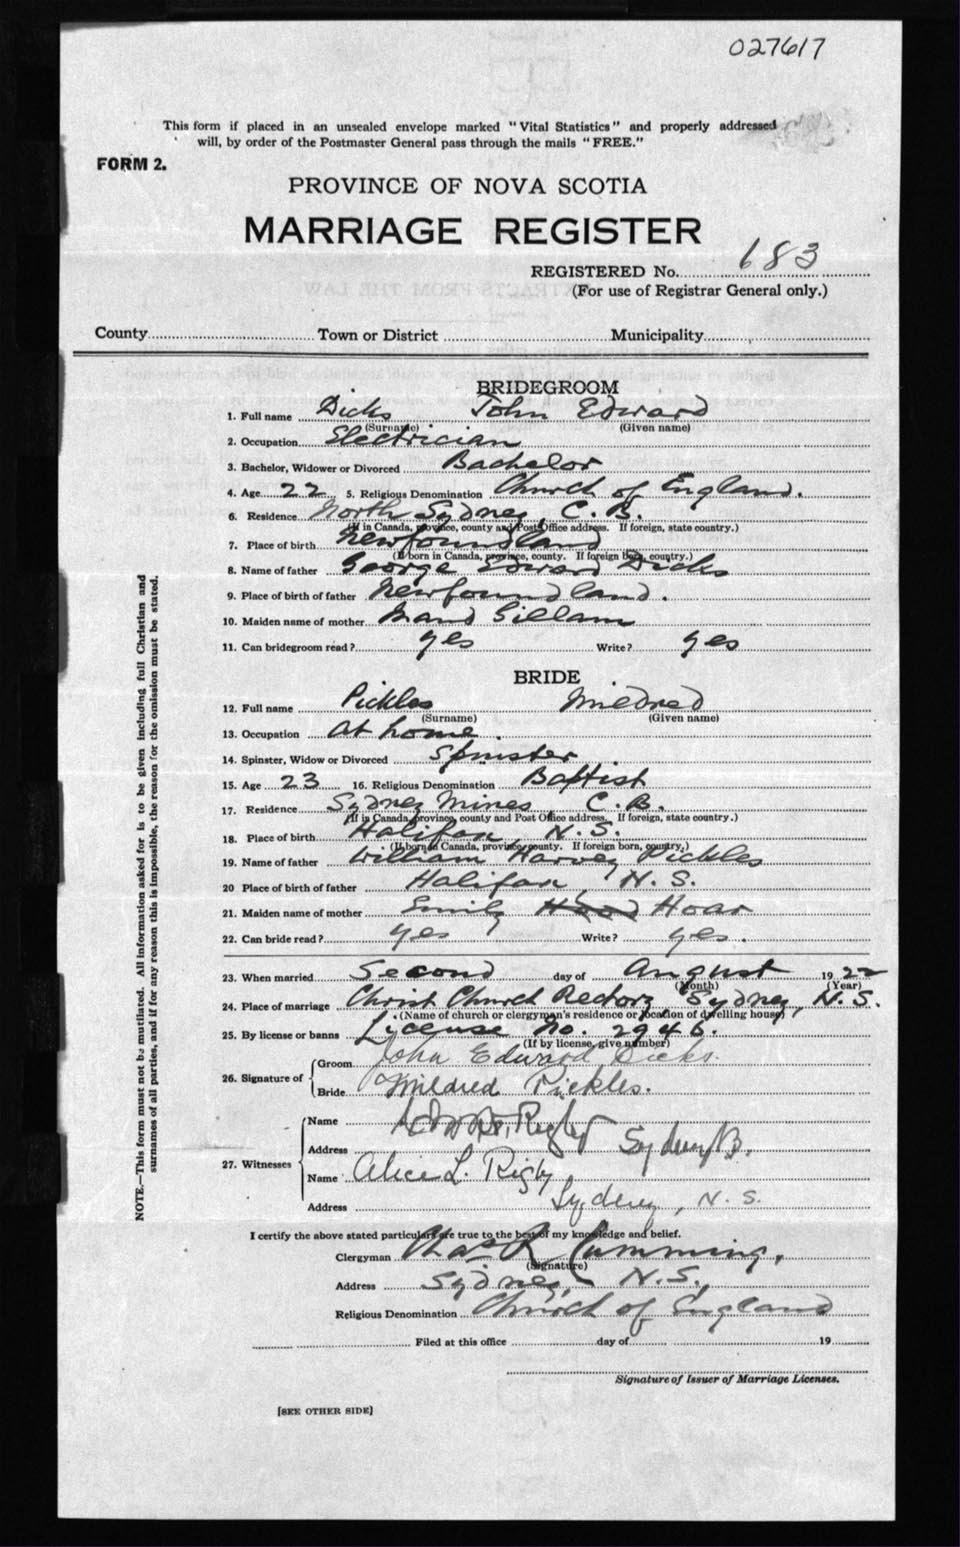 027617
This form if placed in an unsealed envelope marked "Vital Statistics" and properly addressed
will, by order of the Postmaster General pass through the mails "FREE."
FORM 2.
PROVINCE OF NOVA SCOTIA
MARRIAGE REGISTER
REGISTERED No. 183
(For use of Registrar General only.)
County Town or District Municipality
BRIDEGROOM
1. Full name Dicks John Edward
(Surname) (Given name)
2. Occupation Electrician
3. Bachelor, Widower or Divorced Bachelor
4. Age 22 5. Religious Denomination Church of England.
6. Residence North Sydney, C. B.
(If in Canada, province, county and Post Office address. If foreign, state country.)
7. Place of birth Newfoundland
(If born in Canada, province, county. If foreign born, country.)
8. Name of father George Edward Dicks
9. Place of birth of father Newfoundland.
10. Maiden name of mother Maud Gillam
11. Can bridegroom read? yes Write? yes
BRIDE
12. Full name Pickles Mildred
(Surname) (Given name)
13. Occupation At home.
14. Spinster, Widow or Divorced Spinster.
15. Age 23 16. Religious Denomination Baptist
17. Residence Sydney Mines C. B.
(If in Canada, province, county and Post Office address. If foreign, state country.)
18. Place of birth Halifax N. S.
(If born in Canada, province, county. If foreign born, country.)
19. Name of father William Harvey Pickles
20 Place of birth of father Halifax, N. S.
21. Maiden name of mother Emily Hood Hoar
22. Can bride read? yes Write? yes.
23. When married Second day of August 1922
(Month) (Year)
24. Place of marriage Christ Church Rectory Sydney, N. S.
(Name of church or clergyman's residence or location of dwelling house)
25. By license or banns Lycense No. 2946.
(If by license, give number)
26. Signature of
Groom John Edward Dicks.
Bride Mildred Pickles.
27. Witnesses
Name Rigby
Address Sydney
Name Alice L. Rigby
Address Sydney, N. S.
I certify the above stated particulars are true to the best of my knowledge and belief.
Clergyman Chas R Cumming,
(Signature)
Address Sydney, N. S.,
Religious Denomination Church of England
Filed at this office day of 19
Signature of Issuer of Marriage Licenses.
[SEE OTHER SIDE]
NOTE.—This form must not be mutilated. All information asked for is to be given including full Christian and
surnames of all parties, and if for any reason this is impossible, the reason for the omission must be stated.